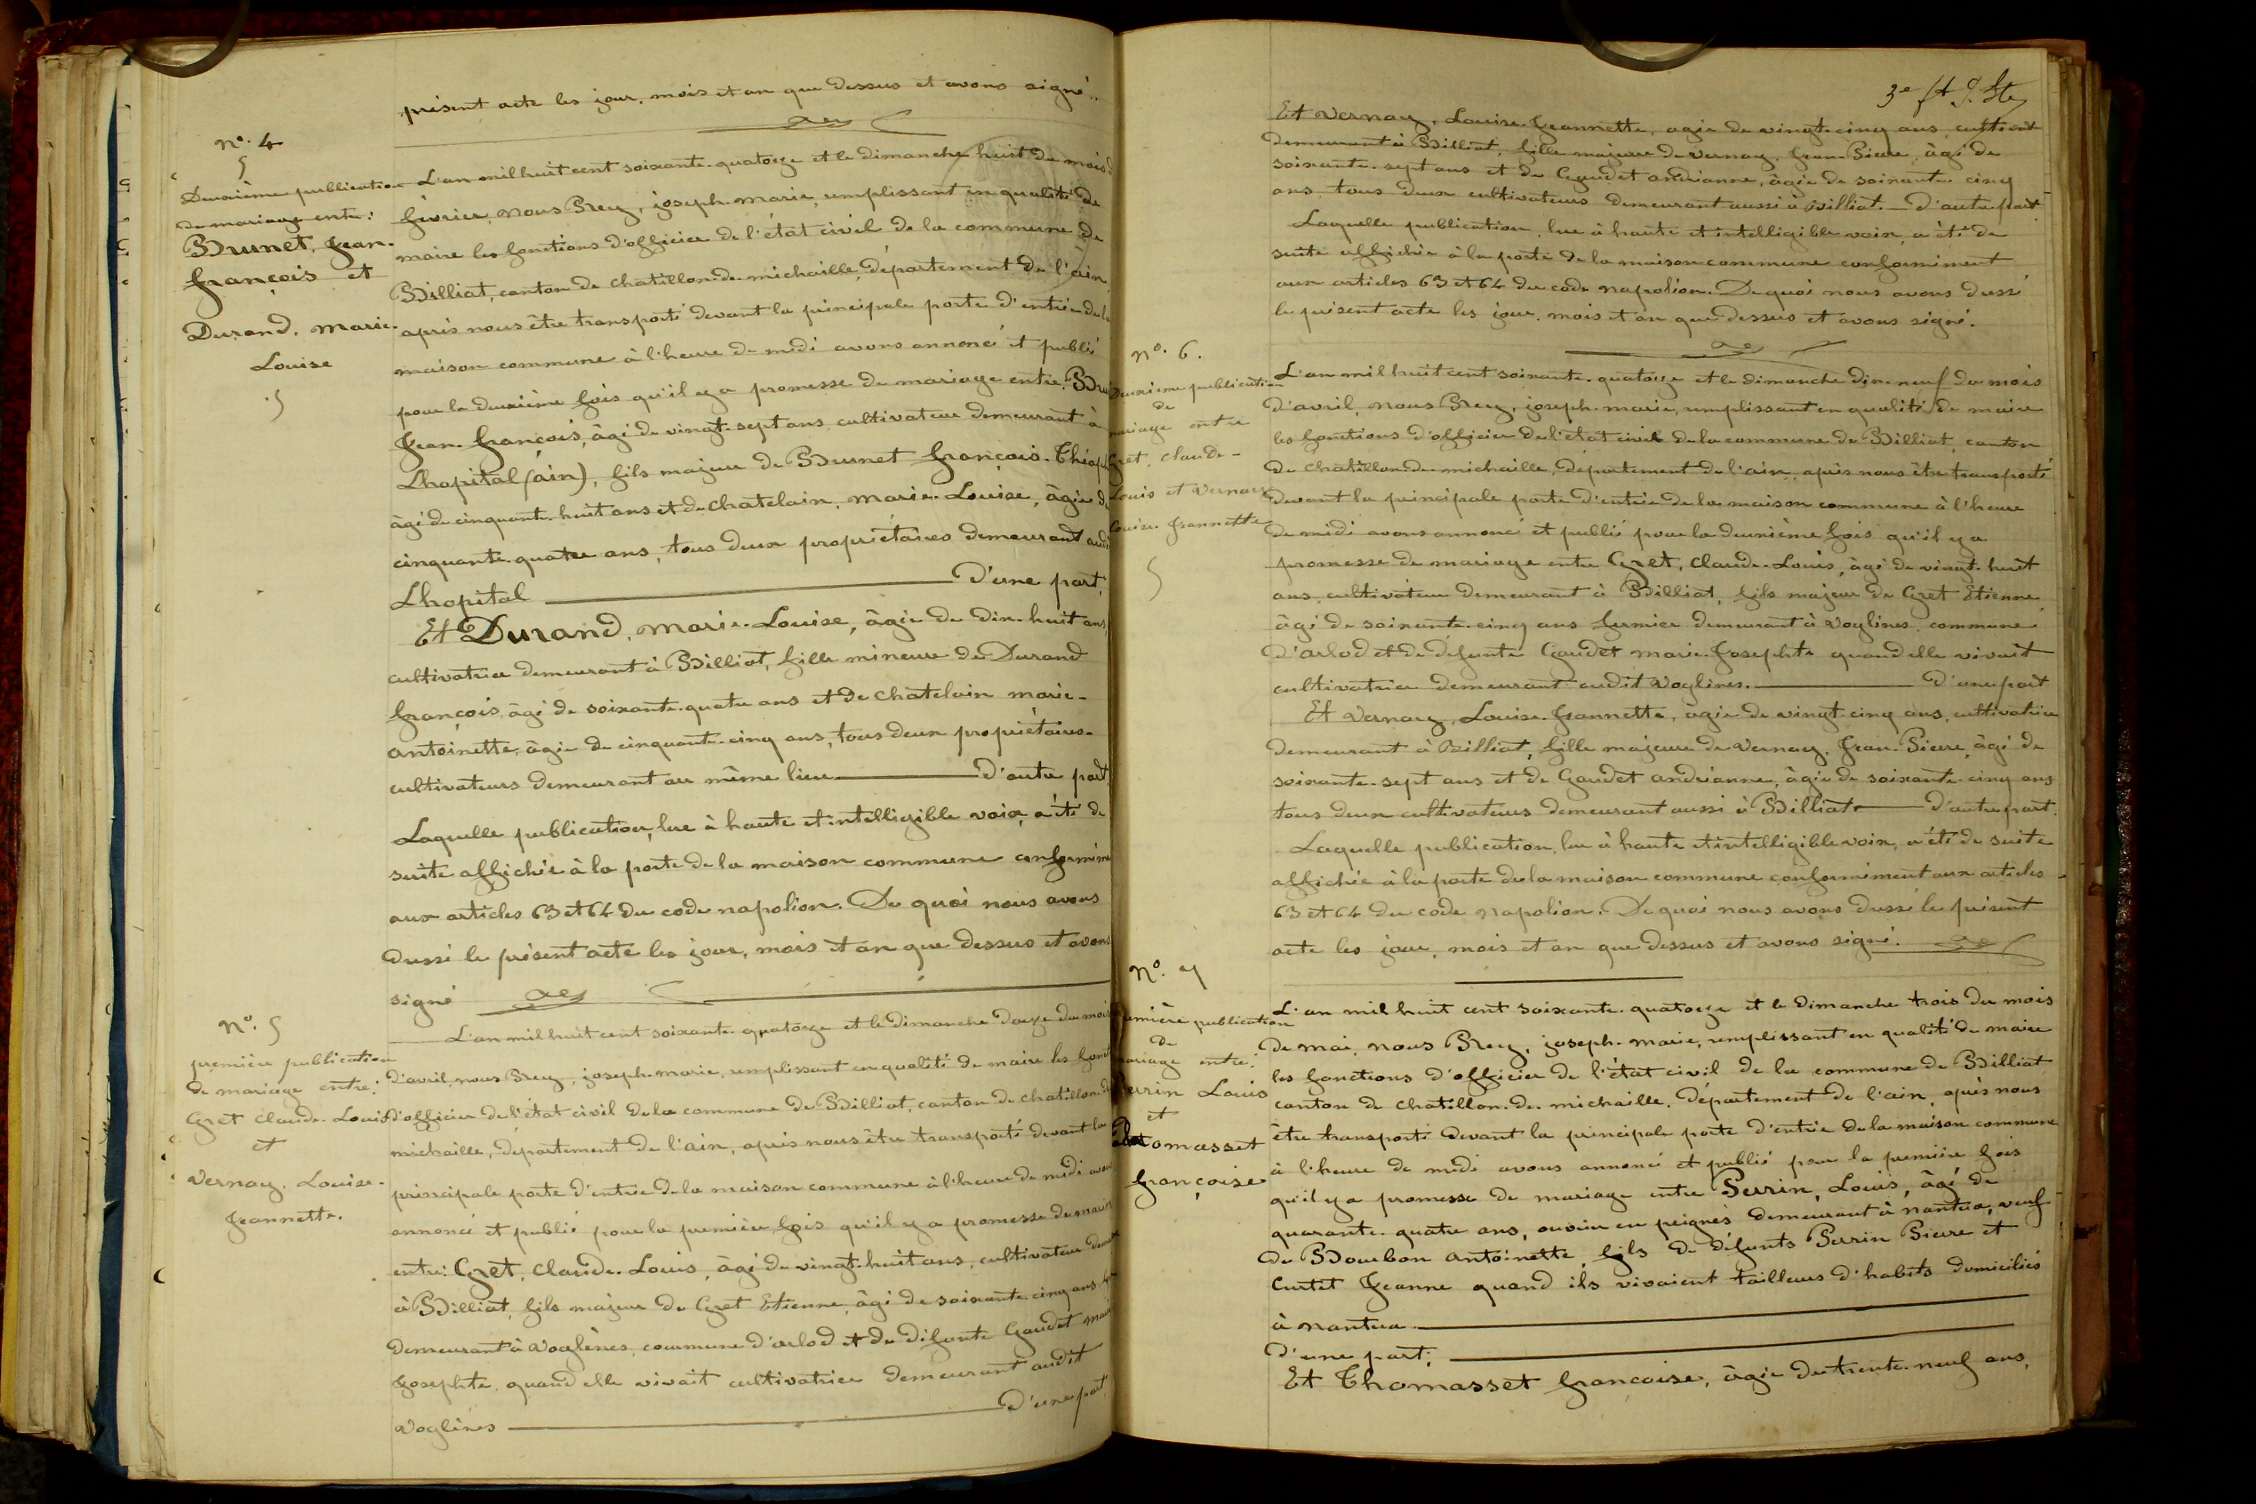 présent acte les jour, mois et an que dessus et avons signé..
n°. 4
Deuxième publication
de mariage entre:
Brunet, Jean-
françois et
Durand, marie-
Louise
L'an mil huit cent soixante-quatorze et le dimanche huit du mois de
février, nous Brey, joseph-marie, remplissant en qualité de
maire les fonctions d'officier de l'état civil de la commune de
Billiat, canton de chatillon-de-michaille, département de l'ain,
après nous être transporté devant la principale porte d'entrée de la
maison commune à l'heure de midi avons annoncé et publié
pour la deuxième fois qu'il y a promesse de mariage entre: Bru
Jean-françois, âgé de vingt-sept ans, cultivateur demeurant à
Lhopital (ain), fils majeur de Brunet françois-Théop
âgé de cinquante-huit ans et de chatelain, marie-Louise, âgée de
cinquante-quatre ans, tous deux propriétaires demeurant audi
Lhopital d'une part,
Et Durand, marie-Louise, âgée de dix-huit ans,
cultivatrice demeurant à Billiat, fille mineure de Durand
françois, âgé de soixante-quatre ans et de chatelain marie-
antoinette, âgée de cinquante-cinq ans, tous deux propriétaires-
cultivateurs demeurant au même lieu d'autre part.
Laquelle publication, lue à haute et intelligible voix, a été de
suite affichée à la porte de la maison commune conformém
aux articles 63 et 64 du code napoléon. De quoi nous avons
dressé le présent acte les jour, mois et an que dessus et avons
signé
n°. 5
première publication
de mariage entre:
Gret claude-Louis
et
Vernay, Louise-
Jeannette.
L'an mil huit cent soixante-quatorze et le dimanche douze du mois
d'avril, nous Brey, joseph-marie, remplissant en qualité de maire les fonct
d'officier de l'état civil de la commune de Billiat, canton de chatillon-de
michaille, département de l'ain, après nous être transporté devant la
principale porte d'entrée de la maison commune à l'heure de midi avons
annoncé et publié pour la première fois qu'il y a promesse de mari
entre: Gret, claude-Louis, âgé de vingt-huit ans, cultivateur deme
à Billiat, fils majeur de Gret Etienne, âgé de soixante cinq ans
demeurant à Voglènes, commune d'arlod et de défunte Gaudet mari
Josephte, quand elle vivait cultivatrice demeurant audit
Voglènes d'une part.
3e
Et Vernay, Louise-Jeannette, agée de vingt-cinq ans,
demeurant à Billiat, fille majeure de Vernay, Jean-Pierre, âgé de
soixante-sept ans et de Gaudet andrianne, âgée de soixante-cinq
ans, tous deux cultivateurs demeurant aussi à Billiat. d'autre part.
Laquelle publication, lue à haute et intelligible voix, a été de
suite affichée à la porte de la maison commune conformément
aux articles 63 et 64 du code napoléon. De quoi nous avons dressé
le présent acte les jour, mois et an que dessus et avons signé.
n°. 6.
Deuxième publication
de
mariage entre
Gret, claude-
Louis et Vernay
Louise-Jeannette
L'an mil huit cent soixante-quatorze et le dimanche dix-neuf du mois
d'avril, nous Brey, joseph-marie, remplissant en qualité de maire
les fonctions d'officier de l'état civil de la commune de Billiat, canton
de chatillon-de-michaille, département de l'ain, après nous être transporté
devant la principale porte d'entrée de la maison commune à l'heure
de midi avons annoncé et publié pour la deuxième fois qu'il y a
promesse de mariage entre Gret, claude-Louis, âgé de vingt-huit
ans, cultivateur demeurant à Billiat, fils majeur de Gret Etienne,
âgé de soixante-cinq ans fermier demeurant à Voglènes, commune
d'arlod et de défunte Gaudet marie-Josephte quand elle vivait
cultivatrice demeurant audit Voglènes. d'une part
Et Vernay, Louise-Jeannette, agée de vingt-cinq ans, cultivatrice
demeurant à Billiat, fille majeure de Vernay, Jean-Pierre, âgé de
soixante-sept ans et de Gaudet andrianne, âgée de soixante-cinq ans
tous deux cultivateurs demeurant aussi à Billiat d'autre part.
Laquelle publication, lue à haute et intelligible voix, a été de suite
affichée à la porte de la maison commune conformément aux articles
63 et 64 du code napoléon. De quoi nous avons dressé le présent
acte les jour, mois et an que dessus et avons signé.
n°. 7
première publication
de
mariage entre:
Perrin Louis
et
Thomasset
françoise
L'an mil huit cent soixante-quatorze et le dimanche trois du mois
de mai, nous Brey, joseph-marie, remplissant en qualité de maire
les fonctions d'officier de l'état civil de la commune de Billiat
canton de chatillon-de-michaille, département de l'ain, après nous
être transporté devant la principale porte d'entrée de la maison commune
à l'heure de midi avons annoncé et publié pour la première fois
qu'il y a promesse de mariage entre Perrin, Louis, âgé de
quarante-quatre ans, ouvrier en peignes demeurant à nantua, veuf
de Bourbon antoinette, fils de défunts Perrin Pierre et
Curtet Jeanne quand ils vivaient tailleurs d'habits domiciliés
à nantua
d'une part;
Et Thomasset françoise, âgée de trente-neuf ans,